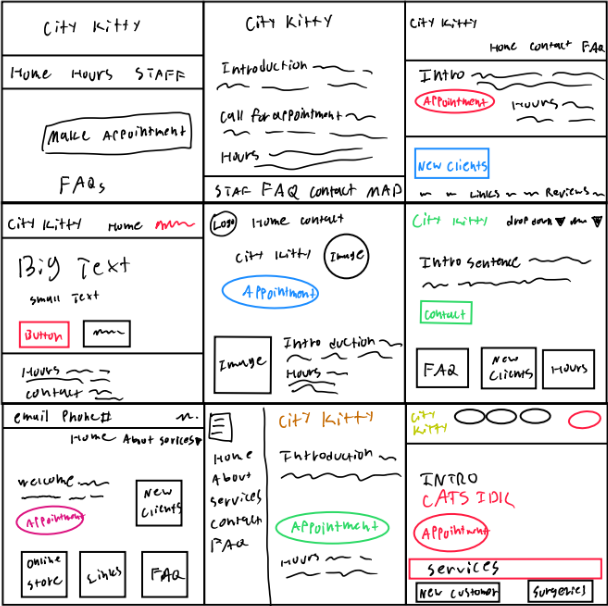 City Kitty
Home Hours STAFF
Make Appointment
FAQs
City Kitty
Introduction
Call for appointment
Hours
STAF FAQ contact MAP
City Kitty
Home Contact FAQ
Intro
Appointment
Hours
New Clients
Links Reviews
City Kitty Home
Big Text
small Text
Button
Hours
Contact
Logo Home contact
City Kitty Image
Appointment
Image
Introduction
Hours
City Kitty drop down
Intro sentence
contact
FAQ
New
Clients
Hours
email Phone#
Home About services
welcome
New
Clients
Appointment
Online
Store
Links
FAQ
City Kitty
Home
About
services
contact
FAQ
Introduction
Appointment
Hours
City
Kitty
INTRO
CATS IDK
Appointment
services
New customer
Surgeries